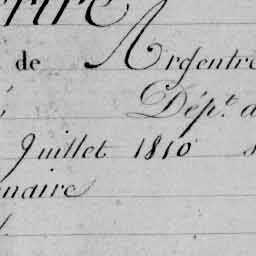 de Argentré
Dépt. d
Juillet 1810
naire